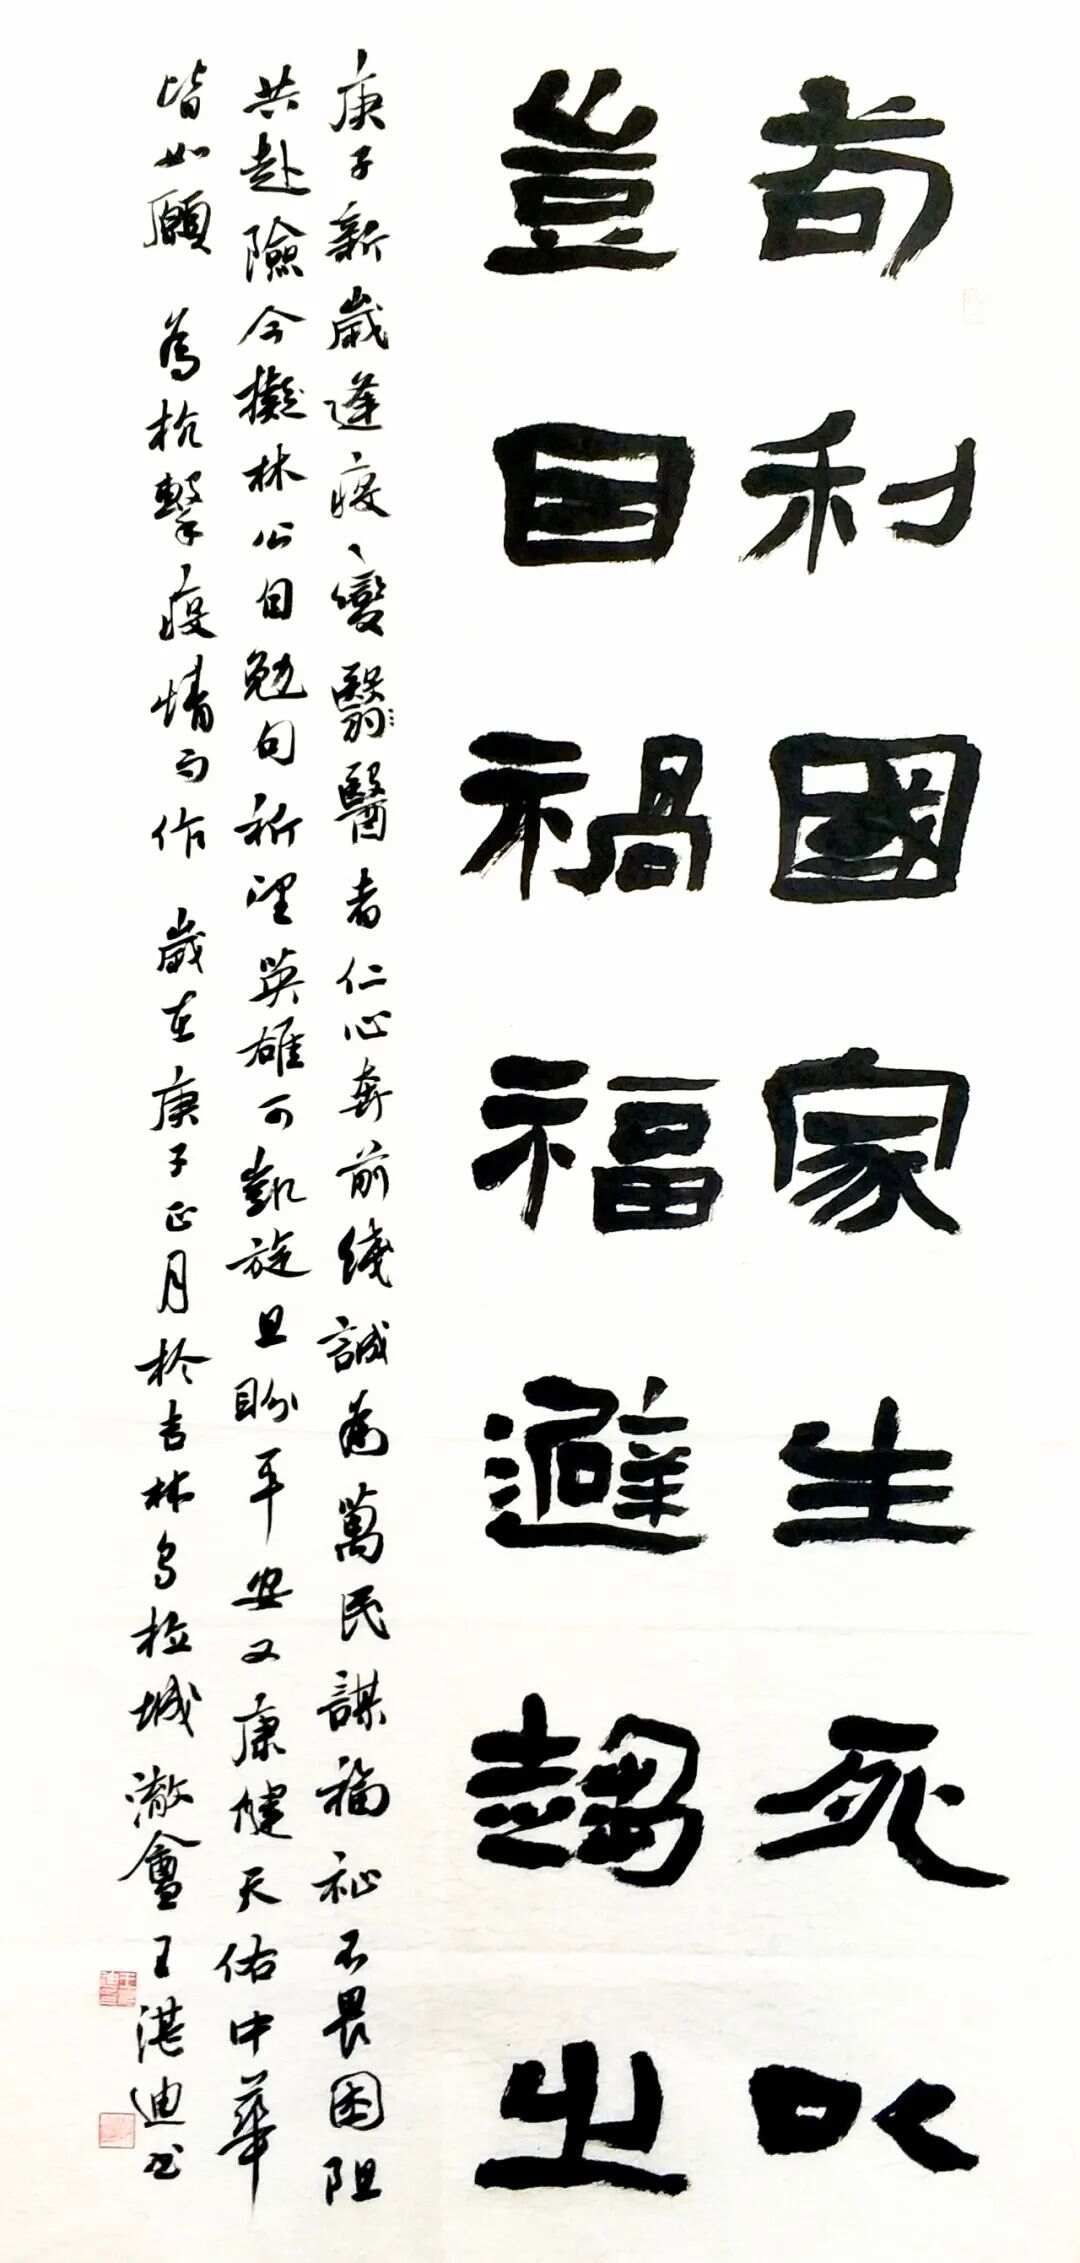 苟利國家生死以
豈因禍福避趨之
庚子新歲逢疫變翳醫者仁心奔前綫誠為萬民謀福祉不畏困阻
共赴險今擬林公自勉句祈望英雄可凱旋且盼平安又康健天佑中華
皆如願 為抗擊疫情而作 歲在庚子正月於吉林烏拉城澈盦王湛迪书